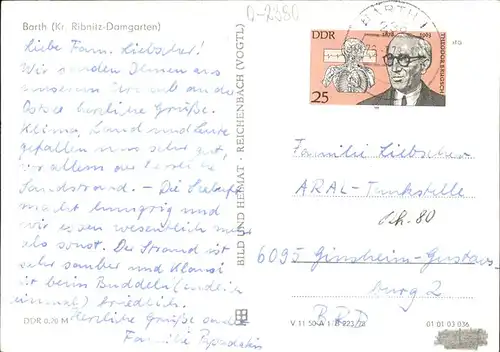 Barth (Kr. Ribnitz-Damgarten)
D-2380
Liebe Fam. Liebscher!
Wir senden Ihnen aus
unserem Urlaub an der
Ostsee herzliche Grüße.
Klima, Land und Leute
gefallen uns sehr gut,
vor allem der
Sandstrand. – Die Seeluft
macht hungrig und
wir essen wesentlich mehr
als sonst. Der Strand ist
sehr sauber und Klausi
ist beim Buddeln (endlich
einmal) friedlich.
Herzliche Grüße
Familie
DDR 0,70 M
BILD UND HEIMAT · REICHENBACH (VOGTL)
BARTH
DDR
1878 1963
THEODOR BRUGSCH
25
Familie Liebscher
ARAL-Tankstelle
Sch. 80
6095 Ginsheim-Gustavs
burg 2
BRD
V 11 50 A 1 B 223/78
01 01 03 036